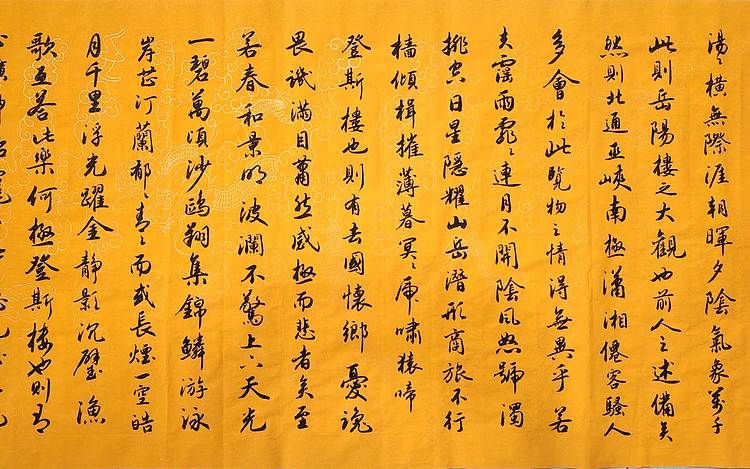 湯々橫無際涯朝暉夕陰氣象萬千
此則岳陽樓之大觀也前人之述備矣
然則北通巫峽南極瀟湘遷客騷人
多會於此覽物之情得無異乎若
夫霪雨霏々連月不開陰風怒號濁
排空日星隱耀山岳潛形商旅不行
檣傾楫摧薄暮冥々虎嘯猿啼
登斯樓也則有去國懷鄉憂讒
畏譏滿目蕭然感極而悲者矣至
若春和景明波瀾不驚上下天光
一碧萬頃沙鷗翔集錦鱗游泳
岸芷汀蘭郁々青々而或長煙一空皓
月千里浮光躍金靜影沉璧漁
歌互答此樂何極登斯樓也則有